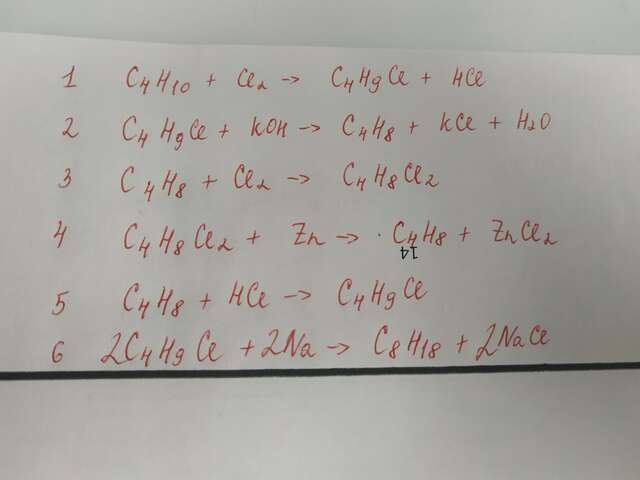 1 C₄H₁₀ + Cl₂ → C₄H₉Cl + HCl
2 C₄H₉Cl + KOH → C₄H₈ + KCl + H₂O
3 C₄H₈ + Cl₂ → C₄H₈Cl₂
4 C₄H₈Cl₂ + Zn → · C₄H₈ + ZnCl₂
14
5 C₄H₈ + HCl → C₄H₉Cl
6 2C₄H₉Cl + 2Na → C₈H₁₈ + 2NaCl